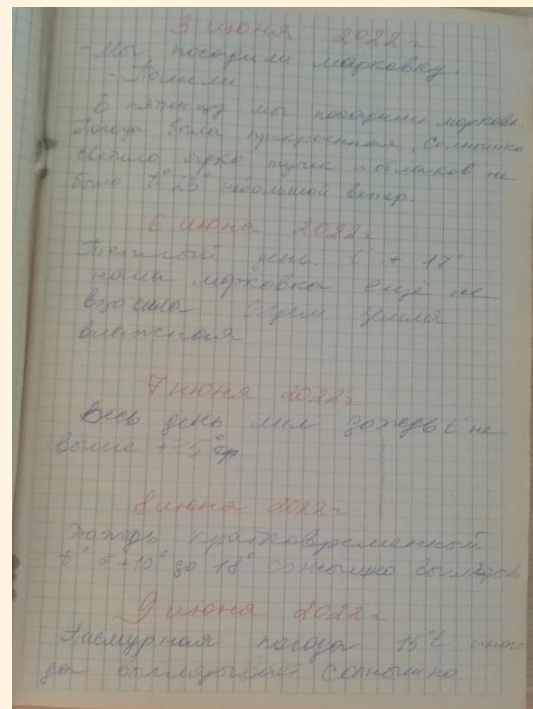 3 июня 2022 г
- Мы посадили марковку.
- Полили.
В пятницу мы посадили морковь.
Погода была прекрасная, Солнышко
светило ярко тучек и облаков не
было t° 26° небольшой ветер.
6 июня 2022г
Теплый день t° + 17°
наша морковка ещё не
взошла ждем земля
влажная
7 июня 2022г
Весь день лил дождь t° не
выше + 15°
8 июня 2022г
Дождь кратковременный
t° +10° до 18° солнышко
9 июня 2022г
Пасмурная погода 15°t иног
да выглядывает Солнышко.